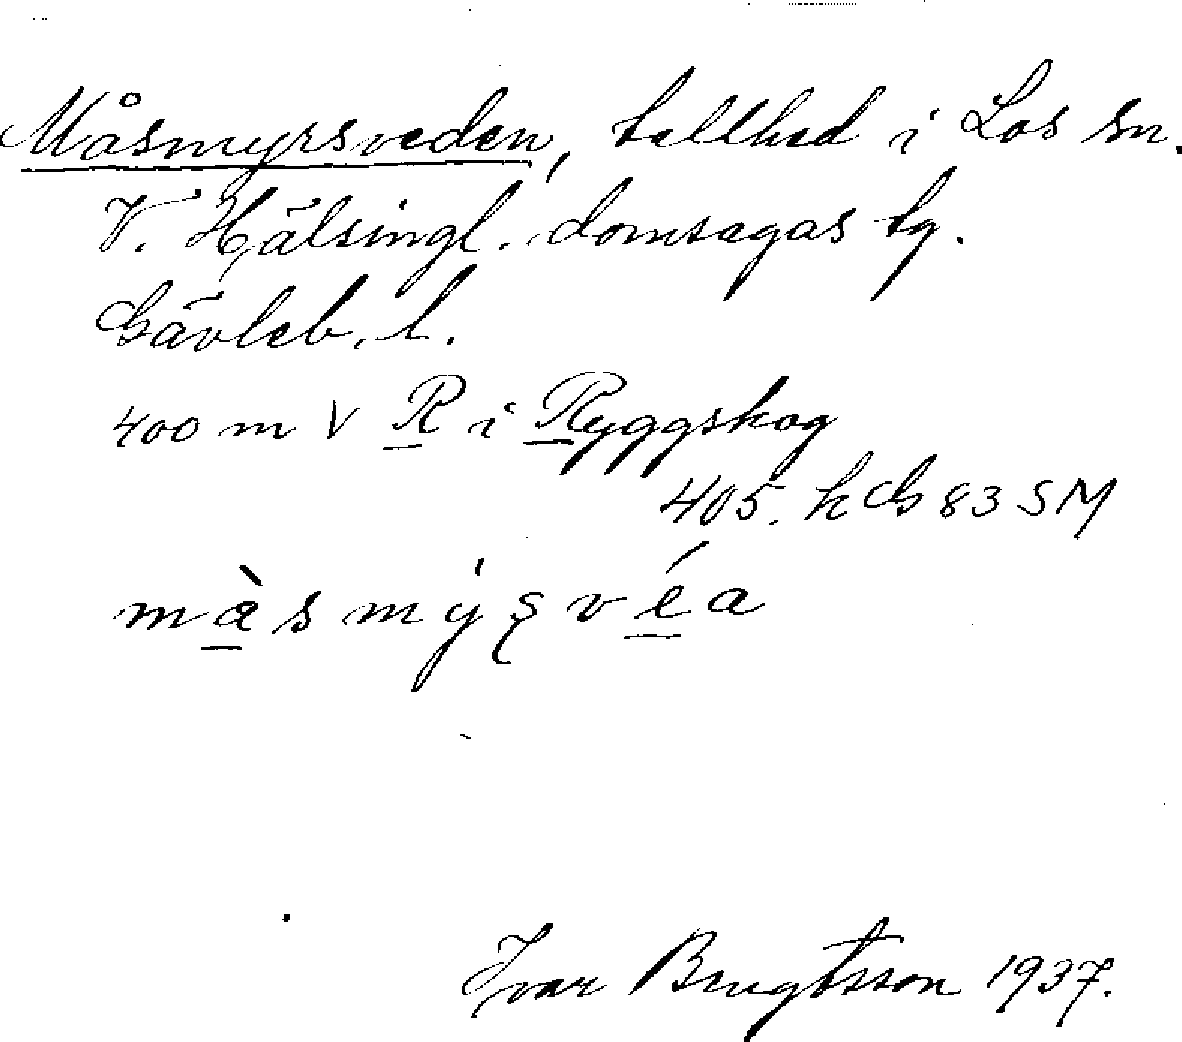 Måsmyrsveden, tallhed i Los sn.
V. Hälsingl. domsagas tg.
Gävleb. l.
400 m V R i Ryggskog
405. k G 83 SM
màsmýs̨véa
Ivar Bengtsson 1937.